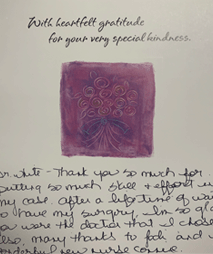 With heartfelt gratitude
for your very special kindness.
Dr. White - Thank you so much for
putting so much skill & effort in
my case. After a lifetime of
to have my surgery, I'm so glad
you were the doctor that I chose
Also, many thanks to and
wonderful new nurse